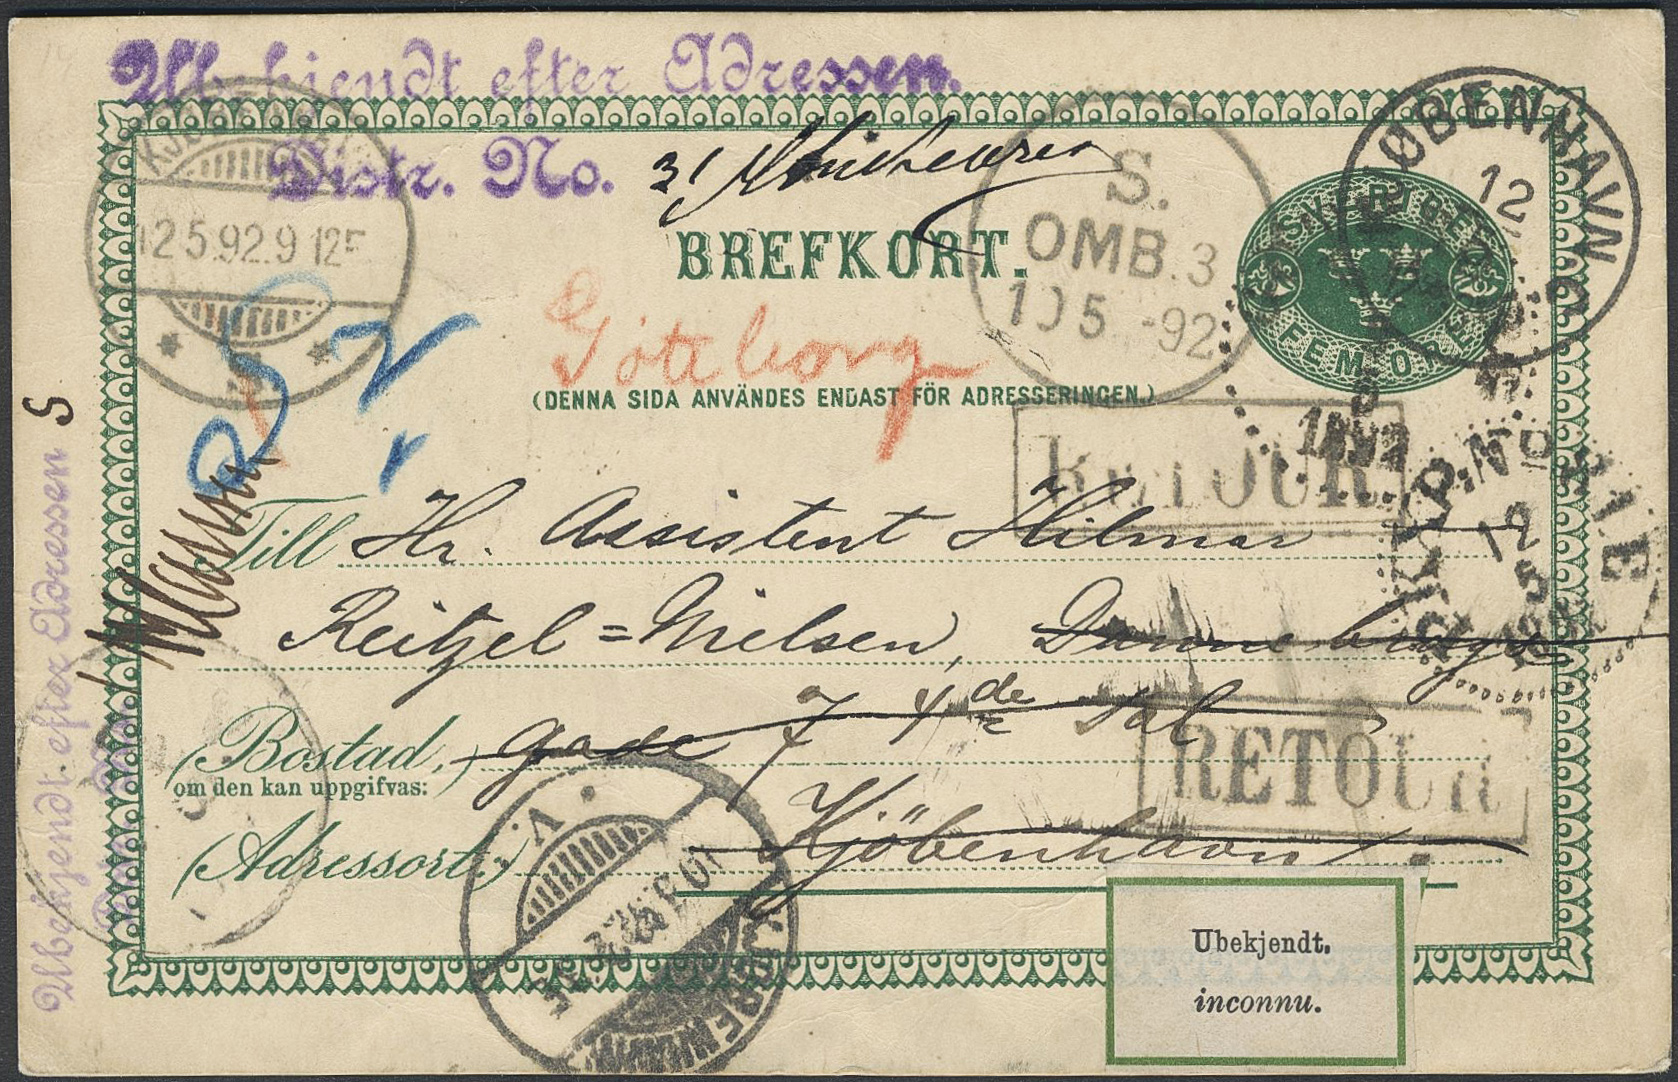 Ubekjendt efter Adressen.
Distr. No. 31
KJØBENHAVN
12.5.92.9 12 F
S.
OMB.3
10 5 -92
KJØBENHAVN
12
SVERIGE
FEM ÖRE
BREFKORT.
Göteborg
(DENNA SIDA ANVÄNDES ENDAST FÖR ADRESSERINGEN.)
1892
RETOUR
Till Hr. Assistent Hilmar
Reitzel=Nielsen, Dannebrogs
(Bostad,) gade 7 4de Sal
om den kan uppgifvas:
(Adressort:) Kjöbenhavn
RETOUR
PKXP. No
12
5
V.
KJØBENHAVN
Ubekjendt efter Adressen S
Ubekjendt.
inconnu.